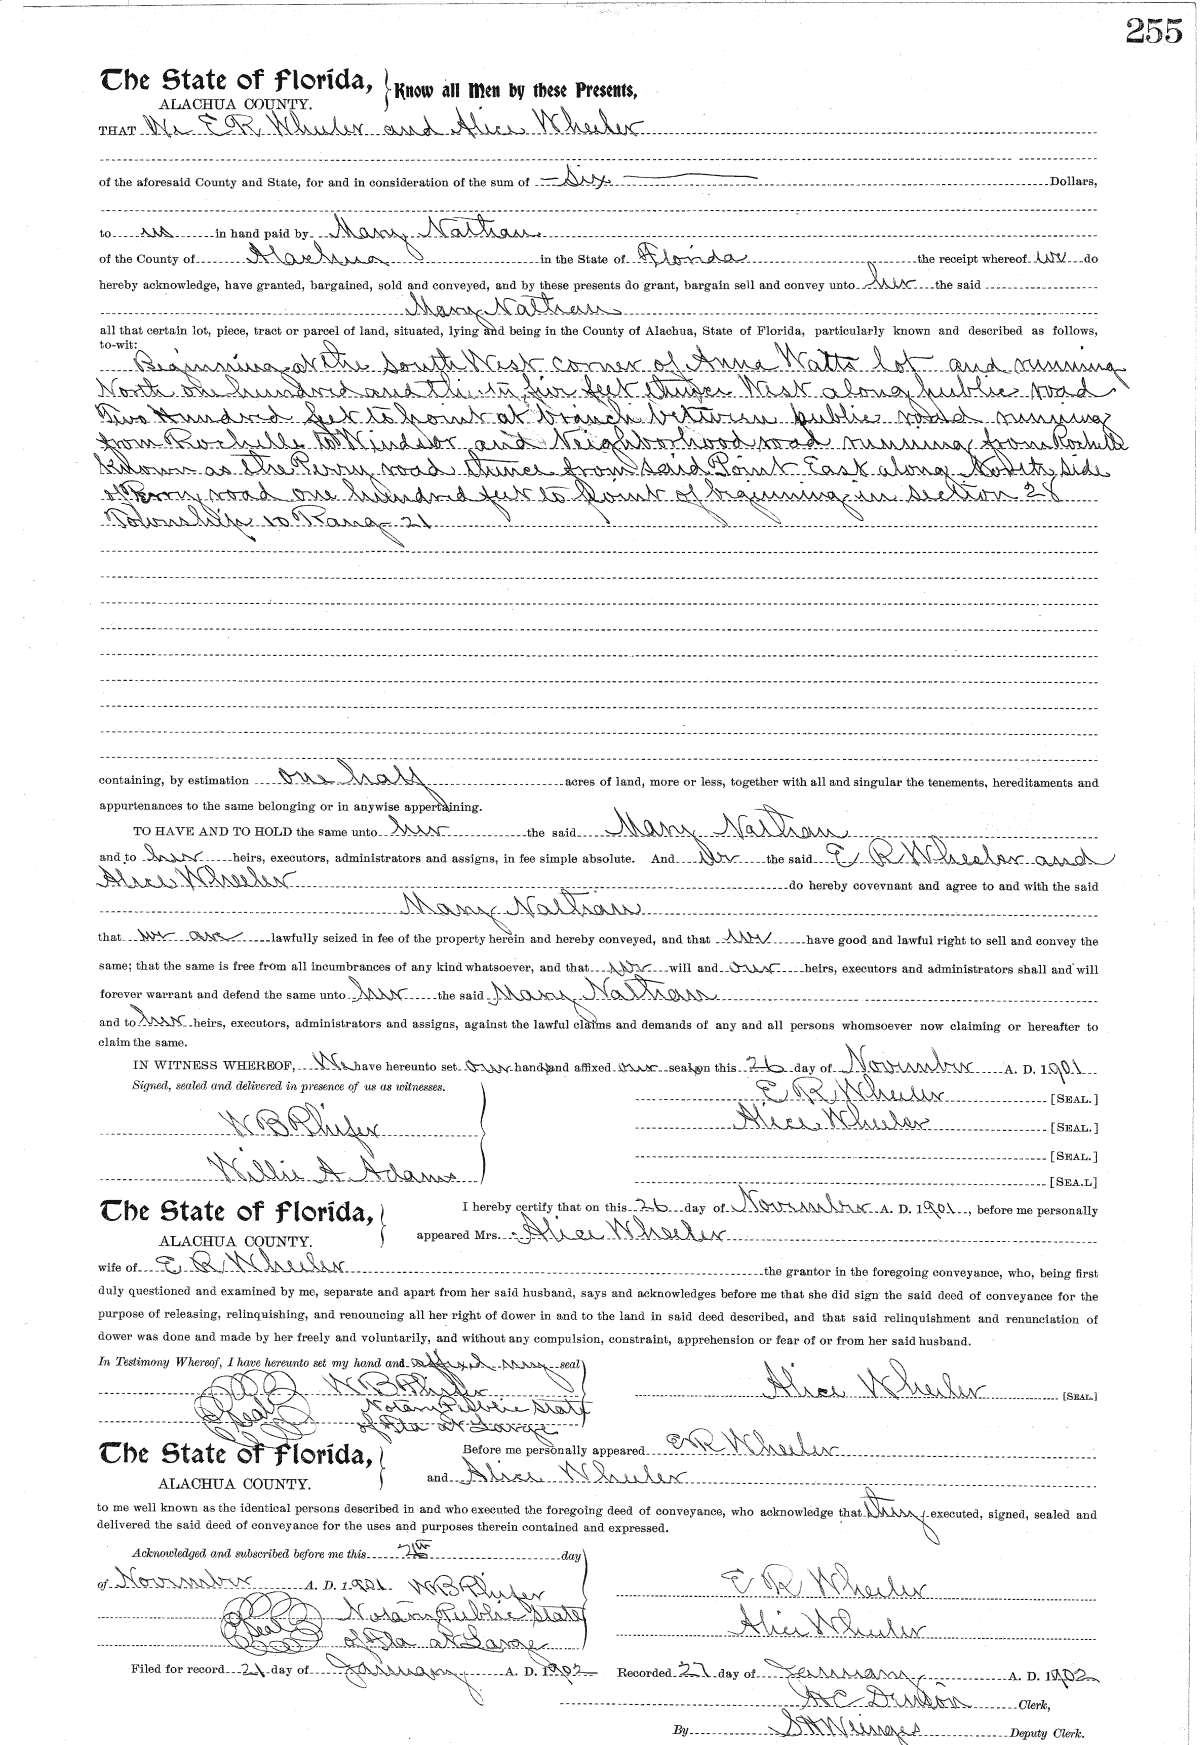 255
The State of Florida, Know all Men by these Presents,
ALACHUA COUNTY.
THAT We E R Wheeler and Alice Wheeler
of the aforesaid County and State, for and in consideration of the sum of Six Dollars,
to us in hand paid by Mary Nathan
of the County of Alachua in the State of Florida the receipt whereof we do
hereby acknowledge, have granted, bargained, sold and conveyed, and by these presents do grant, bargain sell and convey unto her the said
Mary Nathan
all that certain lot, piece, tract or parcel of land, situated, lying and being in the County of Alachua, State of Florida, particularly known and described as follows,
to-wit:
Beginning at the South West corner of Anna Watts lot and running
North one hundred and thirty five feet thence West along public road
Two Hundred feet to point at branch between public road running
from Rochelle to Windsor and Neighborhood road running from Rochelle
known as the Perry road thence from said Point East along North side
of Perry road one hundred feet to point of beginning in section 28
Township 10 Rang 21
containing, by estimation one half acres of land, more or less, together with all and singular the tenements, hereditaments and
appurtenances to the same belonging or in anywise appertaining.
TO HAVE AND TO HOLD the same unto her the said Mary Nathan
and to her heirs, executors, administrators and assigns, in fee simple absolute. And We the said E R Wheeler and
Alice Wheeler do hereby covevnant and agree to and with the said
Mary Nathan
that we are lawfully seized in fee of the property herein and hereby conveyed, and that we have good and lawful right to sell and convey the
same; that the same is free from all incumbrances of any kind whatsoever, and that we will and our heirs, executors and administrators shall and will
forever warrant and defend the same unto her the said Mary Nathan
and to her heirs, executors, administrators and assigns, against the lawful claims and demands of any and all persons whomsoever now claiming or hereafter to
claim the same.
IN WITNESS WHEREOF, We have hereunto set our hands and affixed our seals on this 26 day of November A. D. 1901
Signed, sealed and delivered in presence of us as witnesses.
E R Wheeler [SEAL.]
W B Phifer
Alice Wheeler [SEAL.]
[SEAL.]
Willie A Adams
[SEA.L]
The State of Florida, I hereby certify that on this 26 day of November A. D. 1901, before me personally
ALACHUA COUNTY. appeared Mrs. Alice Wheeler
wife of E R Wheeler the grantor in the foregoing conveyance, who, being first
duly questioned and examined by me, separate and apart from her said husband, says and acknowledges before me that she did sign the said deed of conveyance for the
purpose of releasing, relinquishing, and renouncing all her right of dower in and to the land in said deed described, and that said relinquishment and renunciation of
dower was done and made by her freely and voluntarily, and without any compulsion, constraint, apprehension or fear of or from her said husband.
In Testimony Whereof, I have hereunto set my hand and affixed my seal
W B Phifer Alice Wheeler [SEAL.]
Seal Notary Public State
of Fla at Large
The State of Florida, Before me personally appeared E R Wheeler
ALACHUA COUNTY. and Alice Wheeler
to me well known as the identical persons described in and who executed the foregoing deed of conveyance, who acknowledge that they executed, signed, sealed and
delivered the said deed of conveyance for the uses and purposes therein contained and expressed.
Acknowledged and subscribed before me this 26th day
of November A. D. 1901 W B Phifer E R Wheeler
Notary Public State
Seal Alice Wheeler
of Fla at Large
Filed for record 21 day of January A. D. 1902 Recorded 27 day of January A. D. 1902
H C Denton Clerk,
By S H Wienges Deputy Clerk.